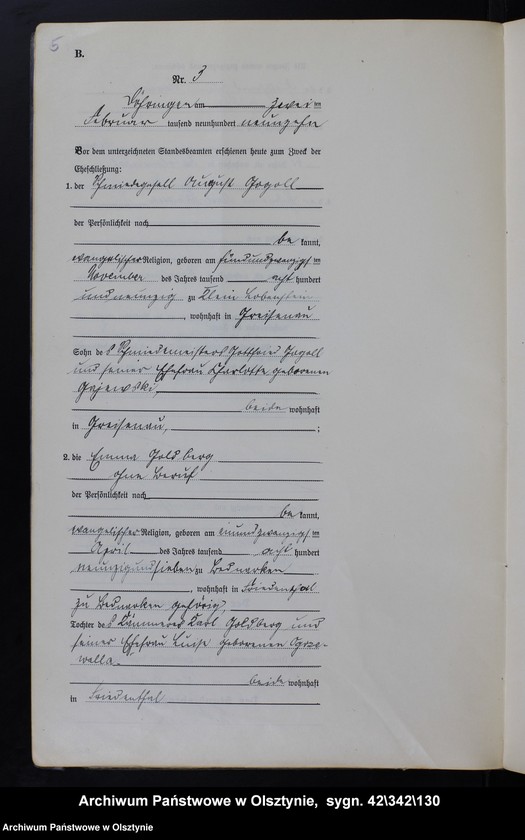 5
B.
Nr. 3
Döhringen am zwei ten
Februar tausend neunhundert neunzehn
Vor dem unterzeichneten Standesbeamten erschienen heute zum Zweck der
Eheschließung:
1. der Schmiedegesell August Gogoll
der Persönlichkeit nach
be kannt,
evangelischer Religion, geboren am fünfundzwanzigs ten
November des Jahres tausend acht hundert
undneunzig zu Klein Lobenstein
, wohnhaft in Greisenau
Sohn des Schmiedemeisters Gottfried Gogoll
und seiner Ehefrau Charlotte geborenen
Gajewski,
beide wohnhaft
in Greisenau, ;
2. die Emma Goldberg
ohne Beruf
der Persönlichkeit nach
be kannt,
evangelischer Religion, geboren am einundzwanzigs ten
April des Jahres tausend acht hundert
neunzigundsieben zu Bednarken
, wohnhaft in Friedenthal
zu Bednarken gehörig,
Tochter des Kämmerers Karl Goldberg und
seiner Ehefrau Luise geborenen
beide wohnhaft
in Friedenthal
Archiwum Państwowe w Olsztynie, sygn. 42\342\130
Archiwum Państwowe w Olsztynie